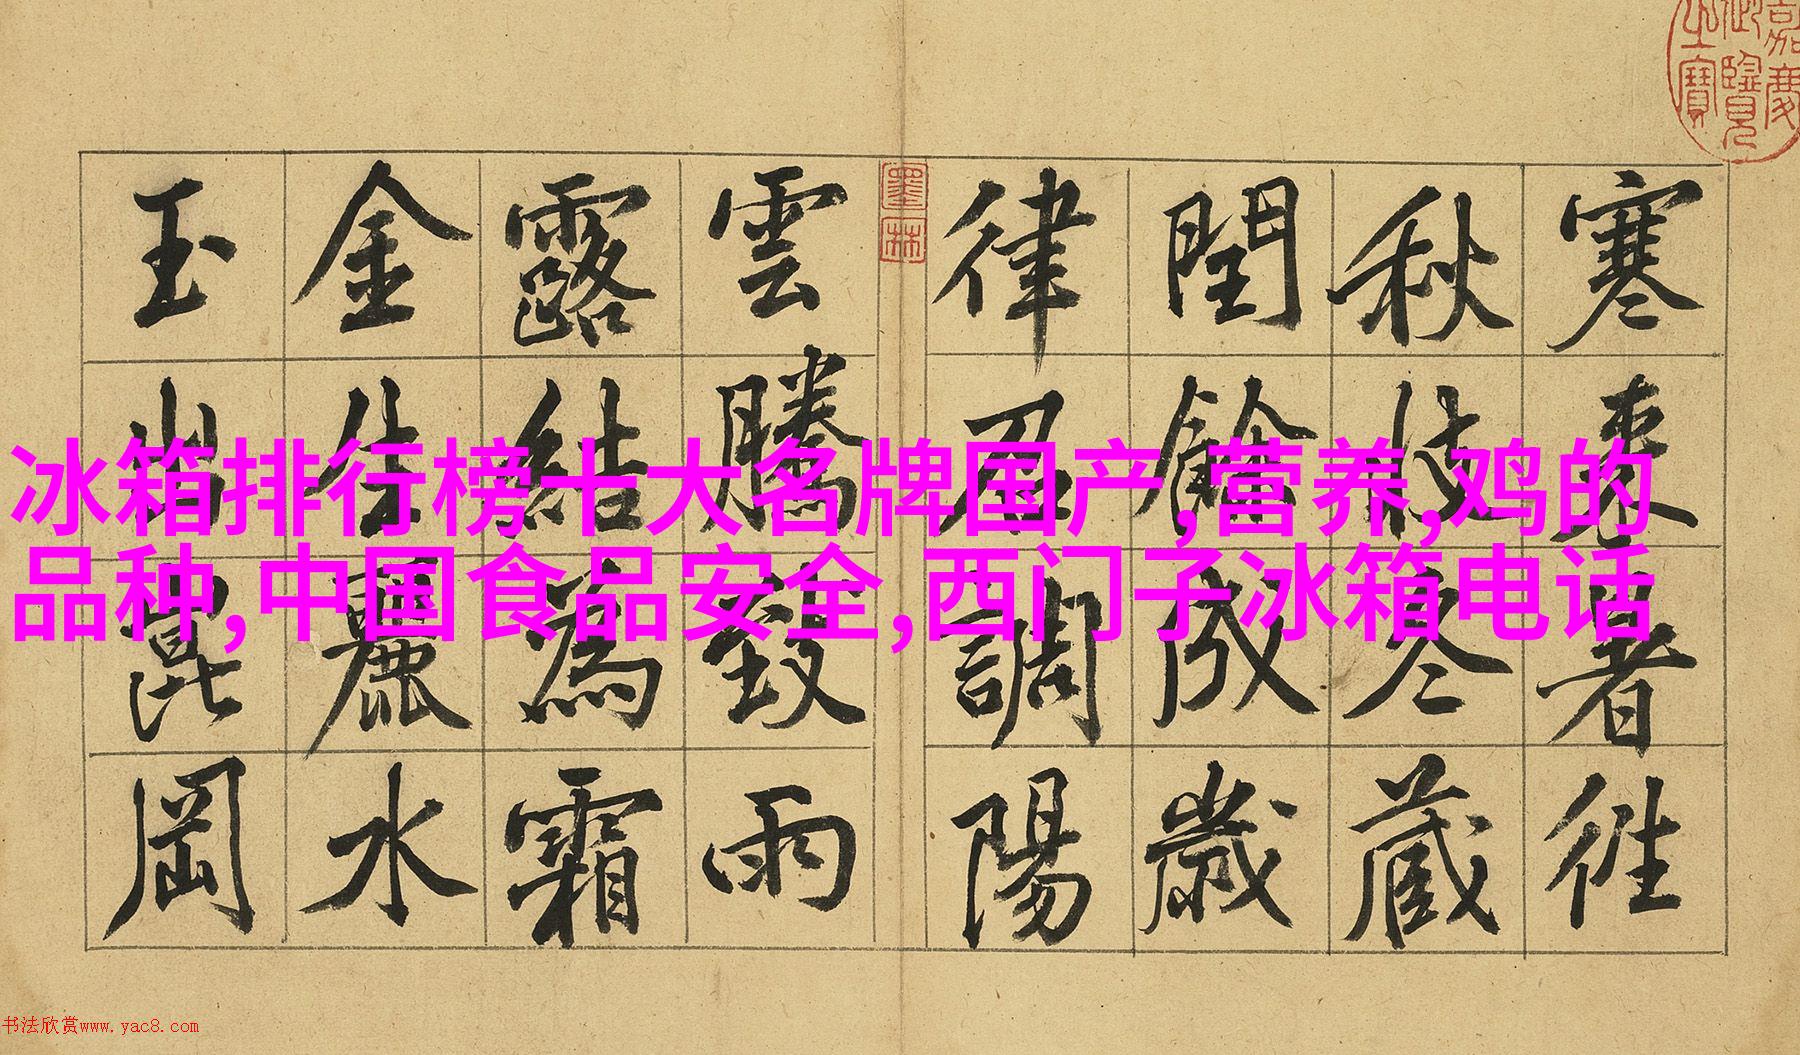 寒來暑往
秋收冬藏
閏餘成歲
律召調陽
雲騰致雨
露結為霜
金生麗水
玉出崑岡
嘉慶
御覽
之寶
墨林
冰箱排行榜十大名牌国产,营养,鸡的
品种,中国食品安全,西门子冰箱电话
书法欣赏www.yac8.com